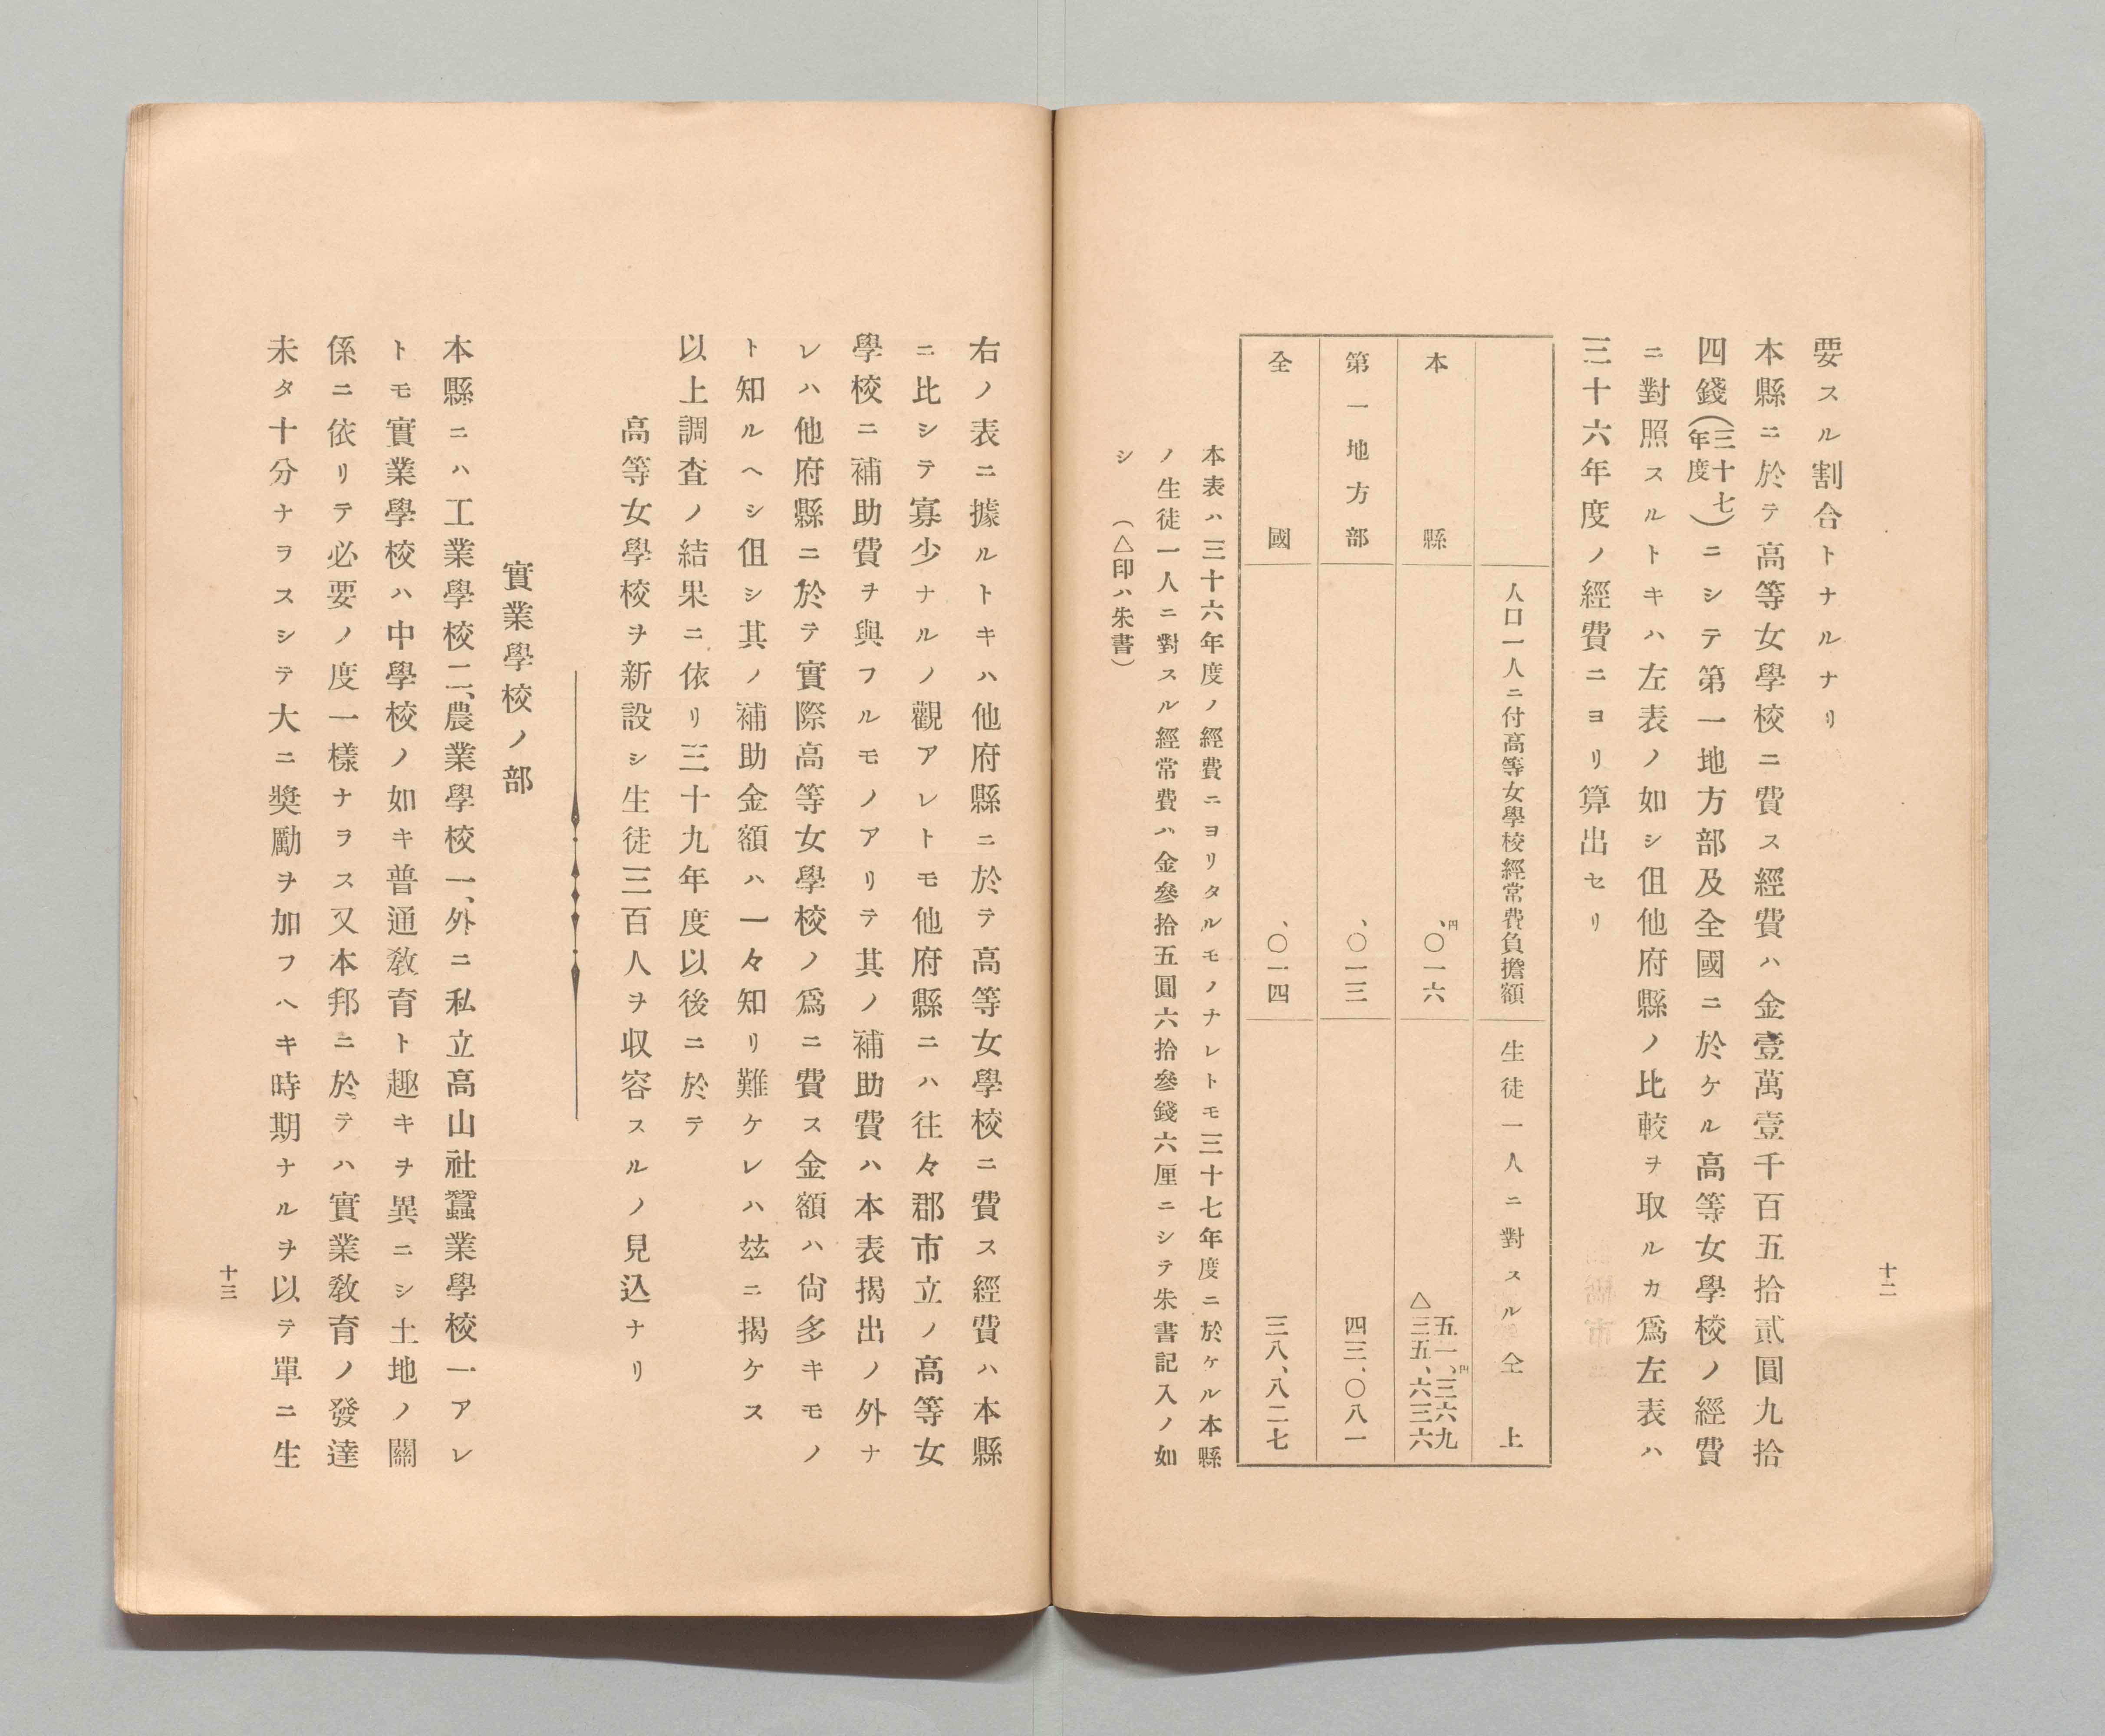 十二
要スル割合トナルナリ
本縣ニ於テ高等女學校ニ費ス經費ハ金壹萬壹千百五拾貳圓九拾
四錢(三十七年度)ニシテ第一地方部及全國ニ於ケル高等女學校ノ經費
ニ對照スルトキハ左表ノ如シ伹他府縣ノ比較ヲ取ルカ爲左表ハ
三十六年度ノ經費ニヨリ算出セリ
人口一人ニ付高等女學校經常費負擔額 生徒一人ニ對スル仝上
本縣 、〇一六円 五一、三六九円 △三五、六三六
第一地方部 、〇一三 四三、〇八一
全國 、〇一四 三八、八二七
本表ハ三十六年度ノ經費ニヨリタルモノナレトモ三十七年度ニ於ケル本縣
ノ生徒一人ニ對スル經常費ハ金參拾五圓六拾參錢六厘ニシテ朱書記入ノ如
シ (△印ハ朱書)
右ノ表ニ據ルトキハ他府縣ニ於テ高等女學校ニ費ス經費ハ本縣
ニ比シテ寡少ナルノ觀アレトモ他府縣ニハ往々郡市立ノ高等女
學校ニ補助費ヲ與フルモノアリテ其ノ補助費ハ本表揭出ノ外ナ
レハ他府縣ニ於テ實際高等女學校ノ爲ニ費ス金額ハ尙多キモノ
ト知ルヘシ伹シ其ノ補助金額ハ一々知リ難ケレハ玆ニ揭ケス
以上調査ノ結果ニ依リ三十九年度以後ニ於テ
高等女學校ヲ新設シ生徒三百人ヲ収容スルノ見込ナリ
實業學校ノ部
本縣ニハ工業學校二、農業學校一、外ニ私立高山社蠶業學校一アレ
トモ實業學校ハ中學校ノ如キ普通敎育ト趣キヲ異ニシ土地ノ關
係ニ依リテ必要ノ度一樣ナヲス又本邦ニ於テハ實業敎育ノ發達
未タ十分ナラスシテ大ニ奬勵ヲ加フヘキ時期ナルヲ以テ單ニ生
十三